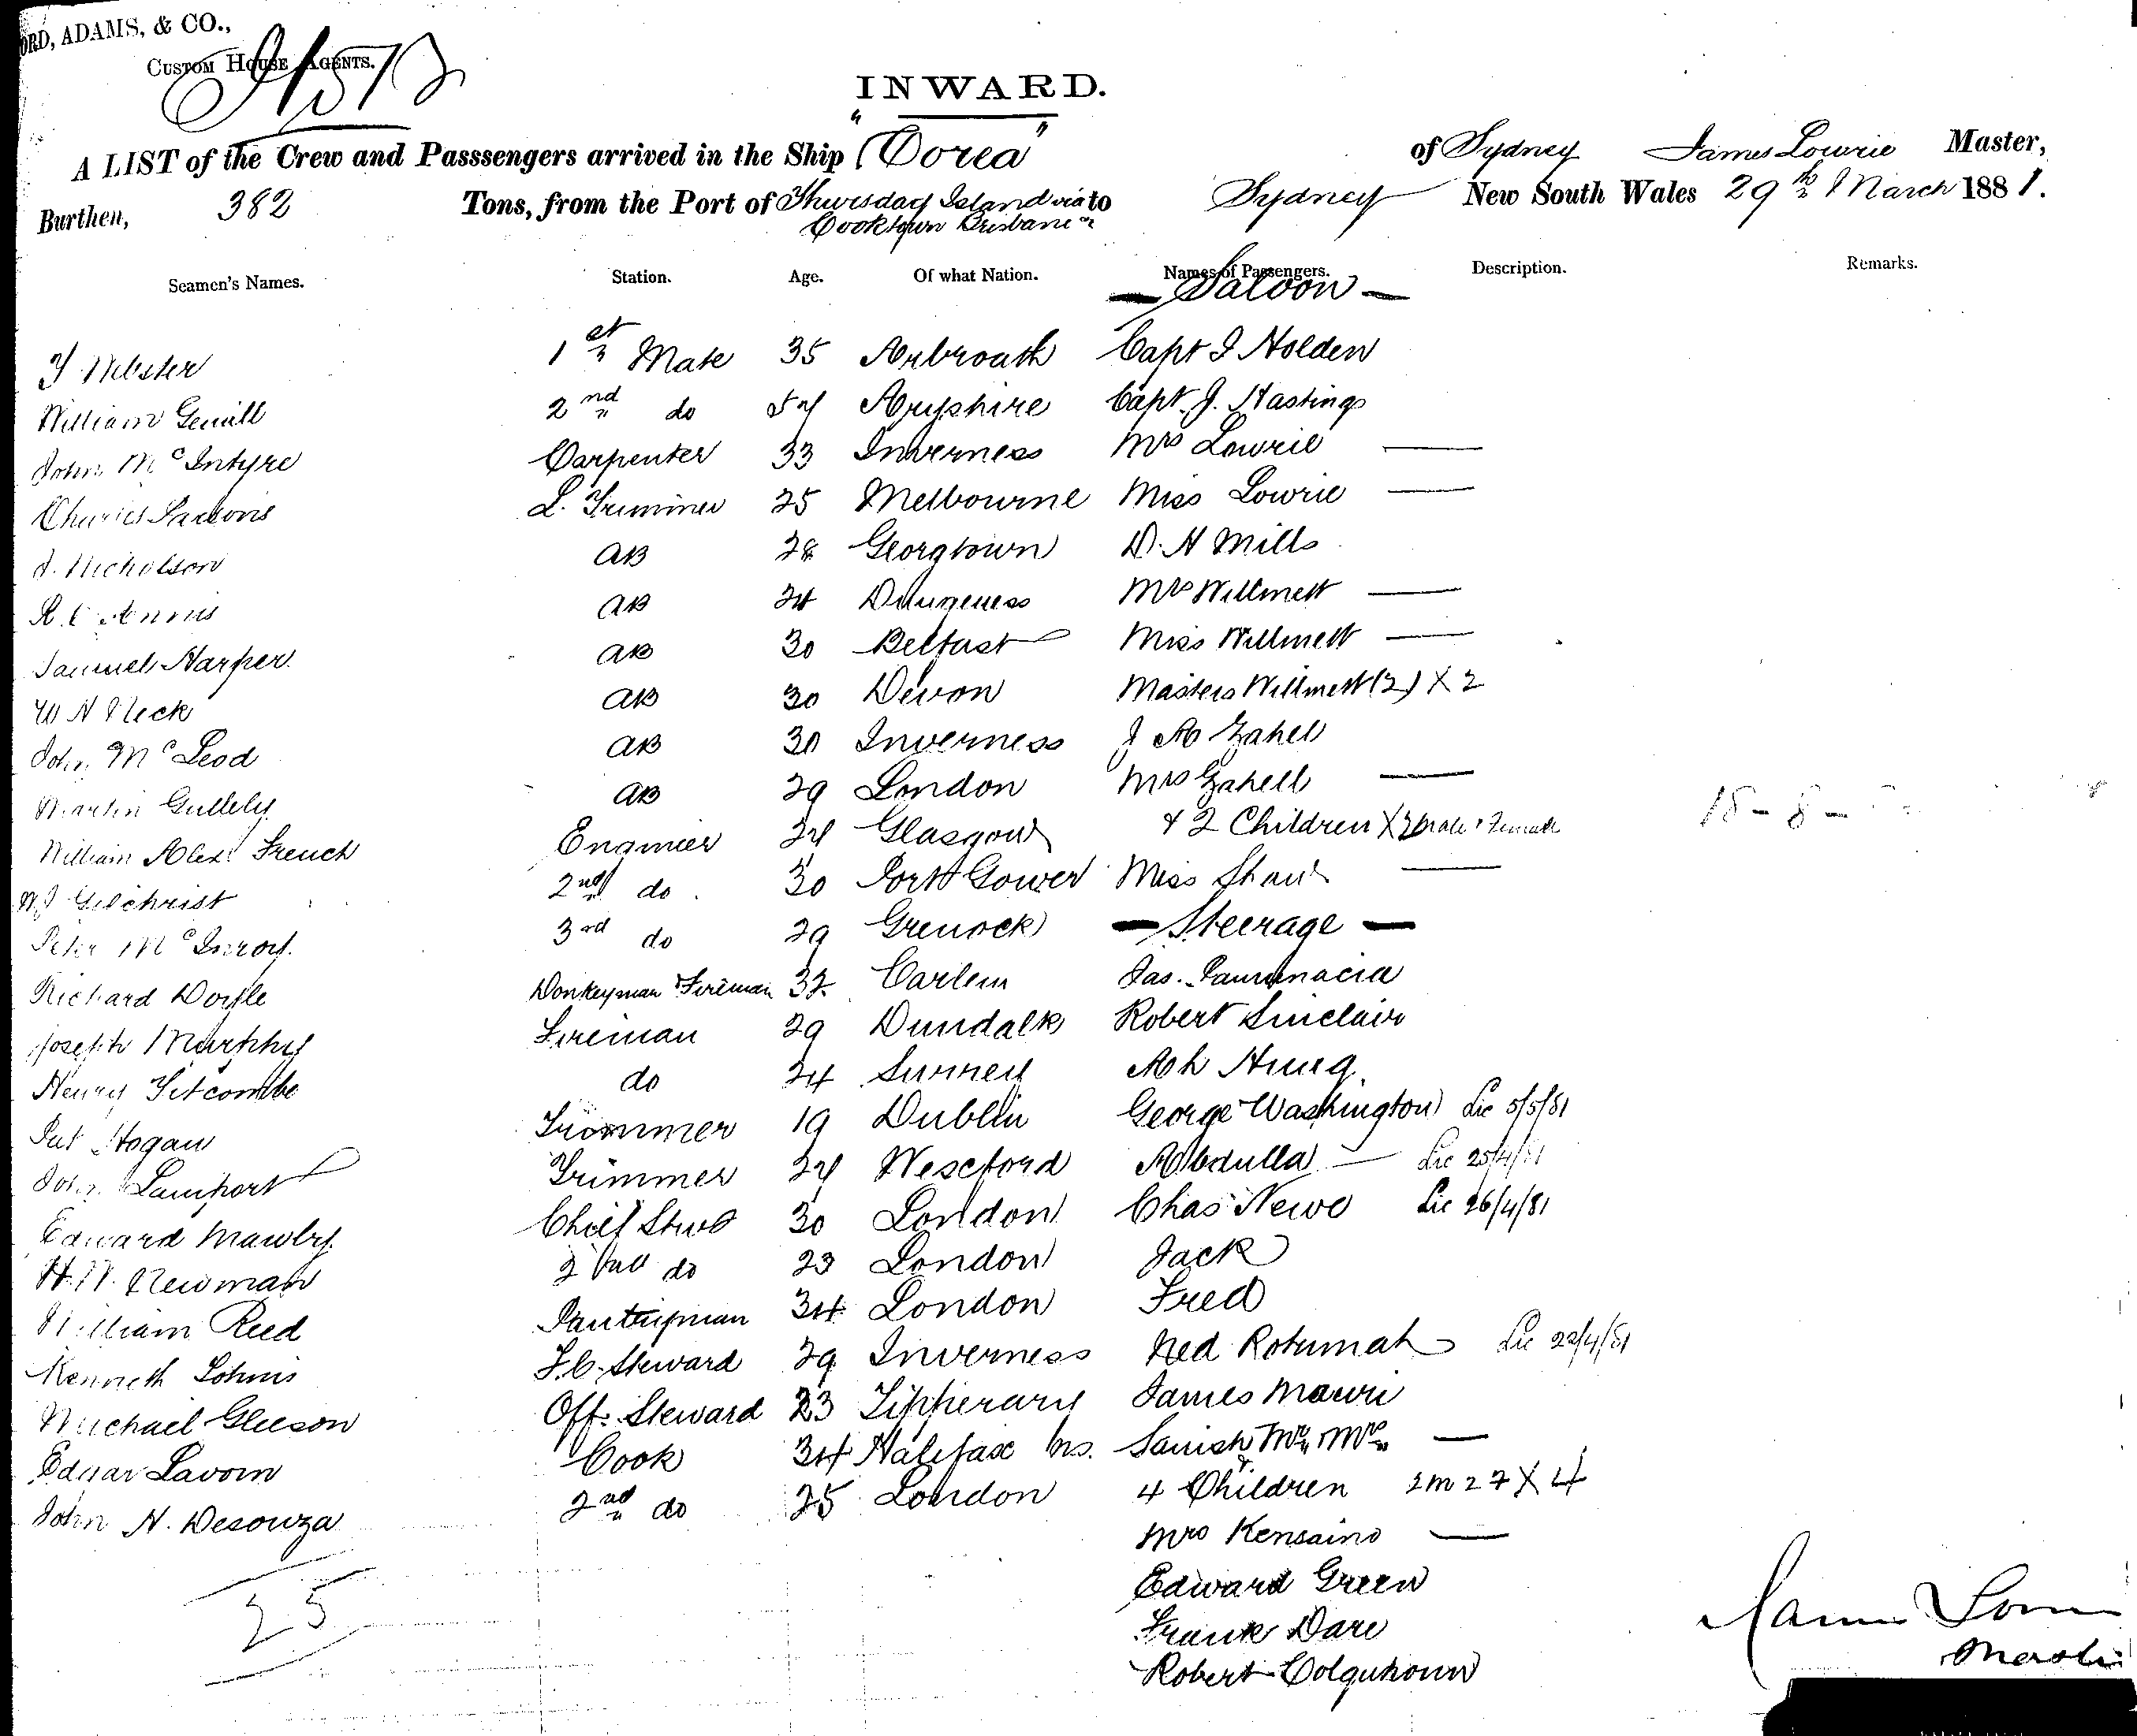 ORD, ADAMS, & CO.,
CUSTOM HOUSE AGENTS.
INWARD.
A LIST of the Crew and Passsengers arrived in the Ship "Corea" of Sydney James Lowrie Master,
Burthen, 382 Tons, from the Port of Thursday Island via to Sydney New South Wales 29th March 1881.
Cooktown Brisbane &c
Seamen's Names. Station. Age. Of what Nation. Names of Passengers. Description. Remarks.
— Saloon —
Webster 1st Mate 35 Arbroath Capt J Holden
William Gemill 2nd do 54 Ayrshire Capt. J. Hastings
John McIntyre Carpenter 33 Inverness Mrs Lowrie —
Charles Parsons L. Trimmer 25 Melbourne Miss Lowrie —
J. Nicholson AB 28 Georgtown D. H Mills
AB 24 Dungeness Mrs Willmett —
Samuel Harper AB 30 Belfast Miss Willmett —
W H Fleck AB 30 Devon Masters Willmett (2) X 2
John McLeod AB 30 Inverness J A Zahel
Martin AB 29 London Mrs Zahell —
William Alexr French Engineer 24 Glasgow & 2 Children X
W J Gilchrist 2nd do 30 Port Gower Miss Shaw —
Peter McInroy 3rd do 29 Grenock — Steerage —
Richard Doyle Donkeyman & Fireman 32 Jas.
Joseph Murphy Fireman 29 Dundalk Robert Sinclair
Henry Titcombe do 24 Surrey Ah Hung
Pat Hogan Trimmer 19 Dublin George Washington Lic 5/5/81
John Lamport Trimmer 24 Wescford Abdulla — Lic 25/4/81
Edward Mawby Chief Stwd 30 London Chas Newo Lic 26/4/81
H. W. Newman 2nd do 23 London Jack
William Reed Pantryman 34 London Fred
Kenneth F.C. Steward 29 Inverness Ned Rotumah Lic 22/4/81
Michael Gleeson Off. Steward 23 Tipperary James Mawri
Edgar Cook 34 Halifax NS. Mr & Mrs —
John H. Desouza 2nd do 25 London 4 Children 2 m 2 F X 4
Mrs Kensaino —
25 Edward Green
Frank Dare
Robert Colquhoun
James Lowrie
Master